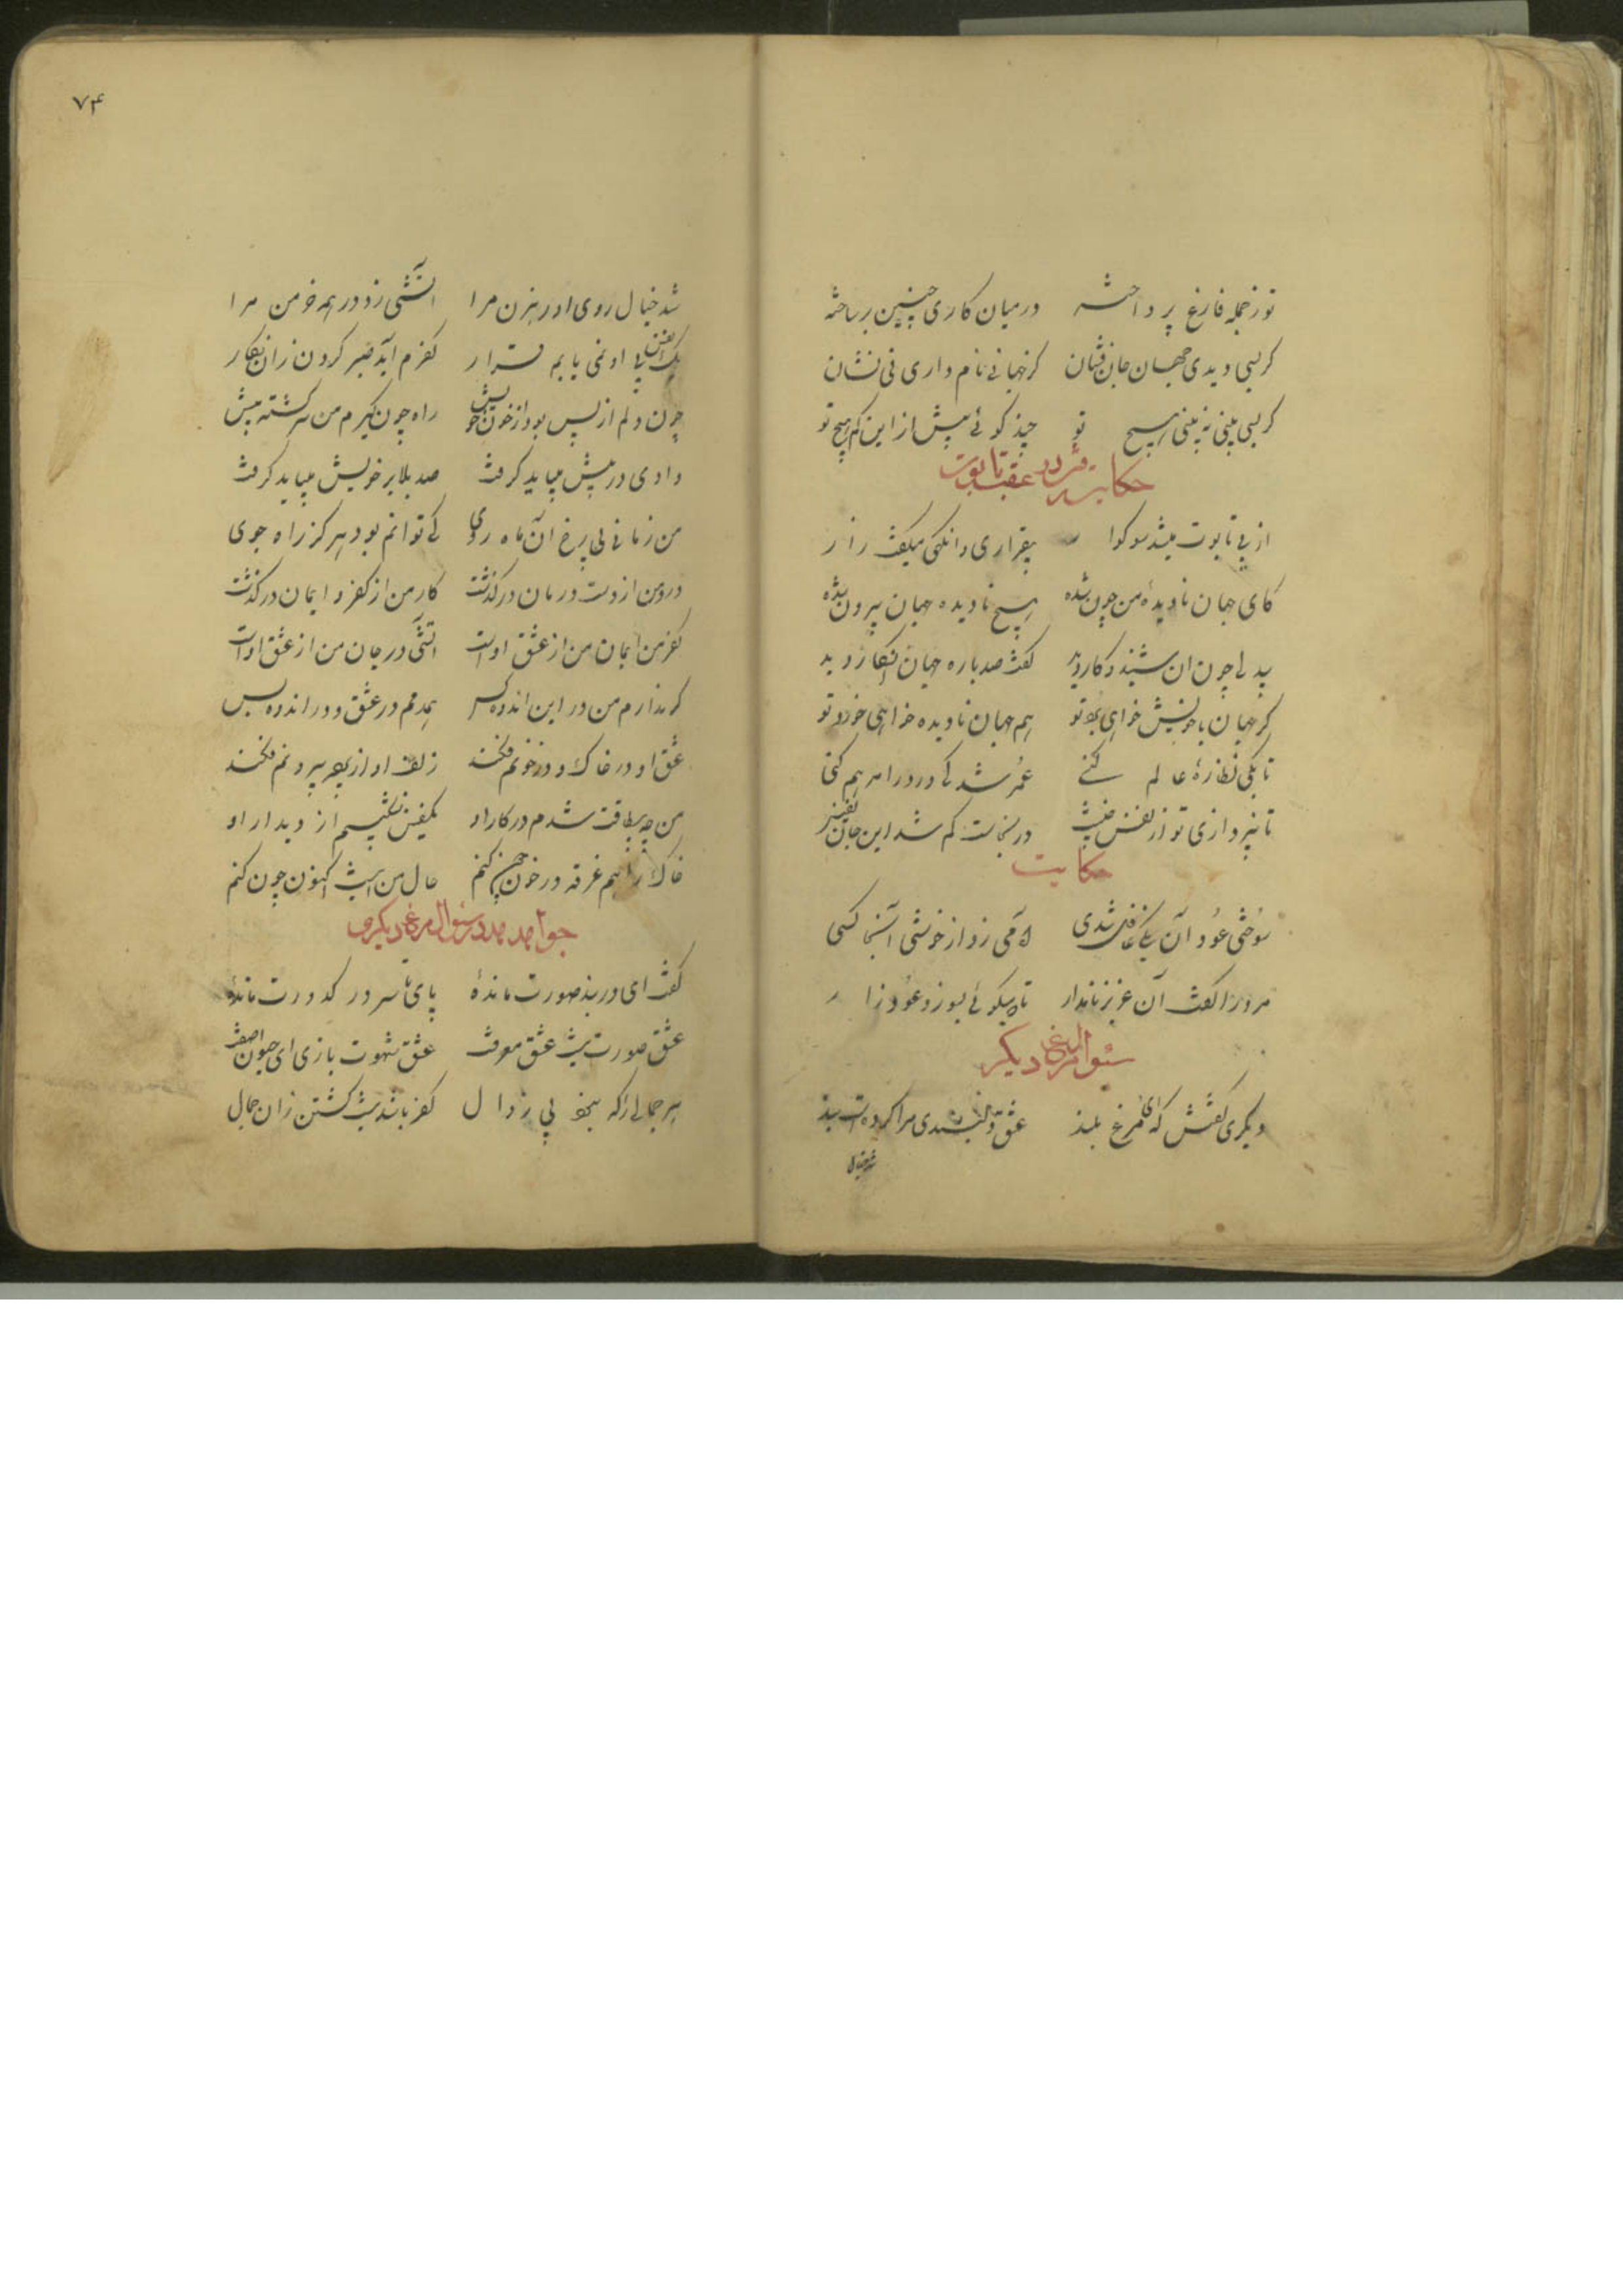 تو ز جمله فارغ پرداخته در میان کاری چنین برساخته
گر بسی دیدی جهان جان فشان کز جهانی نام داری نی نشان
گر بسی بینی نه بینی هیچ تو چند گوئی بیش ازاین کم پیچ تو
حکایت
از پی تابوت میشد سوکوار بیقراری وانگهی میگفت زار
کای جهان نادیدهٔ من چون شده هیچ نادیده جهان بیرون شده
بیدلی چون آن شنید و کار دید گفت صد باره جهان انکار دید
گر جهان باخویش خواهی برد تو هم جهان نادیده خواهی خورد تو
تا بکی نظارهٔ عالم کنی عمر شد کی درد را مرهم کنی
تا نپردازی تو از نفس خسیس در نجاست کم شد این جان نفیس
حکایت
سوختی عود آن یکی غافل شدی آه می زد از خوشی آنجا کسی
مرورا گفت آن عزیز نامدار تا تو میگوئی بسوزد عود زار
سئوال مرغ دیگر
دیگری گفتش که ای مرغ بلند عشق دلبندی مرا کردهٔ است بند
شد خیال
۷۴
شد خیال روی او رهزن مرا آتشی زد در همه خرمن مرا
یک نفس بی او نمی یابم قرار کفرم آید صبر کردن زان نگار
چون دلم از پس بود از خون خویش راه چون گیرم من سرگشته پیش
وادی در پیش میباید گرفت صد بلا بر خویش میباید گرفت
من زمانی بی رخ آن ماه روی کی توانم بود هرگز راه جوی
درد من از دست درمان درگذشت کار من از کفر و ایمان درگذشت
کفر من ایمان من از عشق اوست آتشی در جان من از عشق اوست
گر ندارم من در این اندوه کس همدمم در عشق و در اندوه بس
عشق او در خاک و در خونم فکند زلف او از پرده بیرونم فکند
من چه بیطاقت شدم در کار او یکنفس نشکیبم از دیدار او
خاک راهم غرقه در خون چون کنم حال من اینست اکنون چون کنم
جواب هدهد سئوال مرغ دیگر
گفت ای در بند صورت ماندهٔ پای تا سر در کدورت ماندهٔ
عشق صورت نیست عشق معرفت عشق شهوت بازی ای حیوان صفت
هر جمالی را که نبود بی زوال کفر باشد نیست گشتن زان جمال